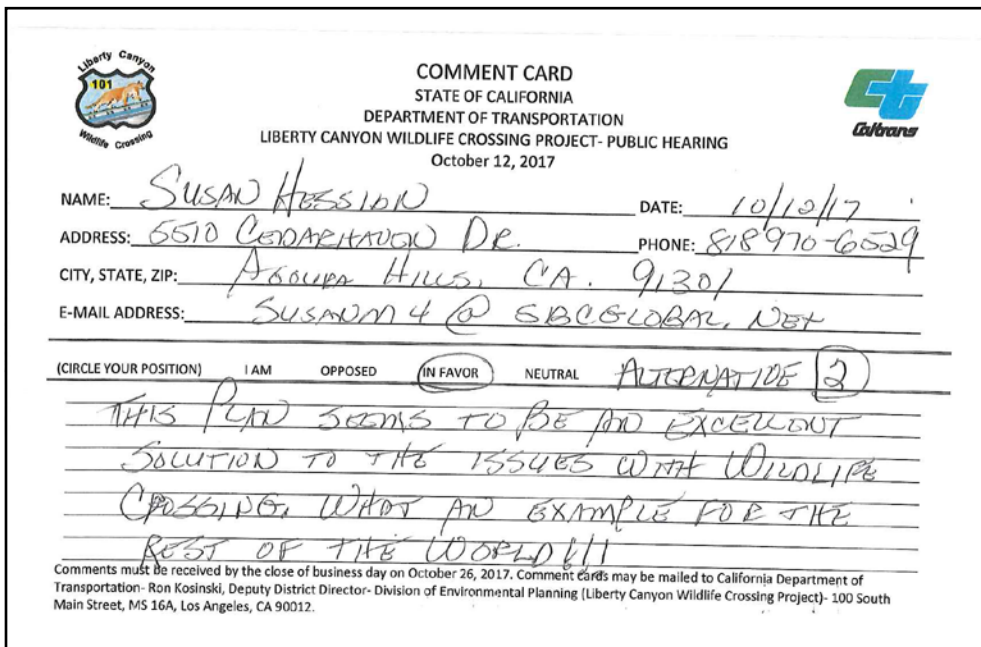 Liberty Canyon
101
Wildlife Crossing
COMMENT CARD
STATE OF CALIFORNIA
DEPARTMENT OF TRANSPORTATION
LIBERTY CANYON WILDLIFE CROSSING PROJECT- PUBLIC HEARING
October 12, 2017
Ct
Caltrans
NAME: SUSAN HESSION DATE: 10/12/17
ADDRESS: 5510 CEDARHAVEN DR. PHONE: 818 970-6529
CITY, STATE, ZIP: AGOURA HILLS, CA. 91301
E-MAIL ADDRESS: SUSANM4@SBCGLOBAL.NET
(CIRCLE YOUR POSITION) I AM OPPOSED IN FAVOR NEUTRAL ALTERNATIVE 2
THIS PLAN SEEMS TO BE AN EXCELLENT
SOLUTION TO THE ISSUES WITH WILDLIFE
CROSSING. WHAT AN EXAMPLE FOR THE
REST OF THE WORLD!!!
Comments must be received by the close of business day on October 26, 2017. Comment cards may be mailed to California Department of
Transportation- Ron Kosinski, Deputy District Director- Division of Environmental Planning (Liberty Canyon Wildlife Crossing Project)- 100 South
Main Street, MS 16A, Los Angeles, CA 90012.